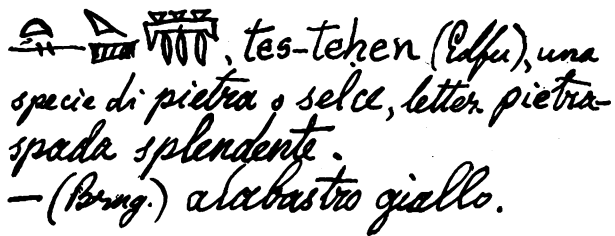 , tes-tehen (Edfu), una
specie di pietra o selce, letter. pietra-
spada splendente.
— (Brug.) alabastro giallo.